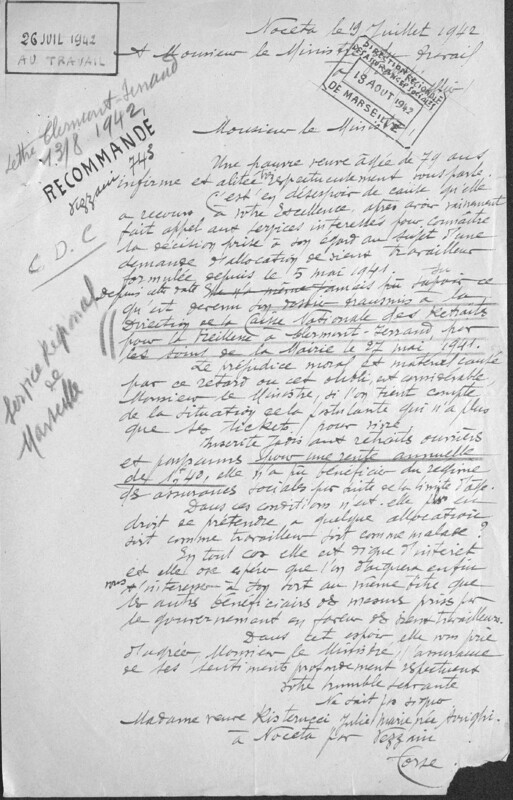 Noceta le 19 Juillet 1942
26 JUIL 1942
AU TRAVAIL
A Monsieur le Ministre du Travail
DIRECTION RÉGIONALE
DES ASSURANCES SOCIALES
18 AOUT 1942
DE MARSEILLE
Lettre Clermont-Ferrand
13/8 1942
RECOMMANDE
Vezzani 743
C. D. C
Service Régional
de
Marseille
Monsieur le Ministre,
Une pauvre veuve âgée de 79 ans,
infirme et alitée très respectueusement vous parle.
C'est en désespoir de cause qu'elle
a recours à votre Excellence, après avoir vainement
fait appel aux services interessés pour connaître
la décision prise à son égard au sujet d'une
demande d'allocation de vieux travailleur
formulée depuis le 5 mai 1941.
Depuis cette date elle n'a même jamais pu savoir ce
qu'est devenu son dossier transmis à la
Direction de la Caisse Nationale des Retraites
pour la Vieillesse à Clermont-Ferrand par
les soins de la Mairie le 27 mai 1941.
Le préjudice moral et matériel causé
par ce retard ou cet oubli, est considérable,
Monsieur le Ministre, si l'on tient compte
de la situation de la postulante qui n'a plus
que ses tickets pour vivre
Inscrite jadis aux retraites ouvrières
et paysannes pour une rente annuelle
de, elle n'a pu bénéficier du régime
des assurances sociales par suite de la limite d'âge.
Dans ces conditions n'est-elle pas en
droit de prétendre à quelque allocation
soit comme travailleur soit comme malade?
En tout cas elle est digne d'intérêt
et elle ose espérer que l'on daignera enfin
s'intéresser à son sort au même titre que
les autres bénéficiaires des mesures prises par
le gouvernement en faveur des vieux travailleurs.
Dans cet espoir, elle vous prie
d'agréer, Monsieur le Ministre, l'assurance
de ses sentiments profondément respectueux
Votre humble servante
Ne sait pas signer
Madame veuve Risterucci Julie Marie née Arrighi
à Noceta par Vezzani
Corse.